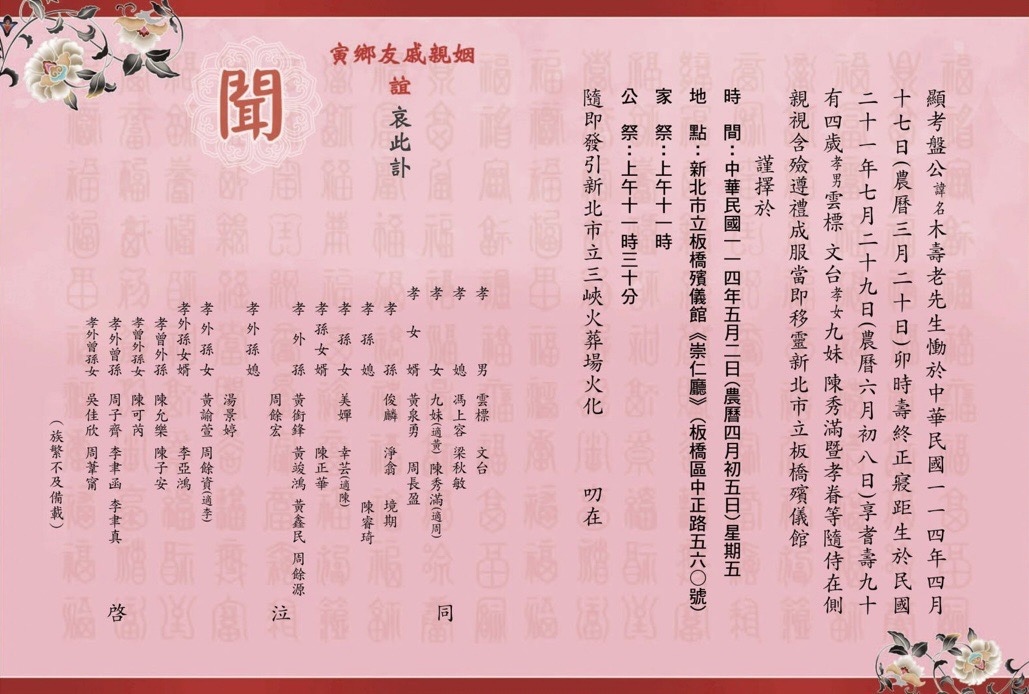 顯考盤公諱名木壽老先生慟於中華民國一一四年四月
十七日(農曆三月二十日)卯時壽終正寢距生於民國
二十一年七月二十九日(農曆六月初八日)享耆壽九十
有四歲孝男雲標 文台孝女九妹 陳秀滿暨孝眷等隨侍在側
親視含殮遵禮成服當即移靈新北市立板橋殯儀館
謹擇於
時 間：中華民國一一四年五月二日(農曆四月初五日)星期五
地 點：新北市立板橋殯儀館《崇仁廳》(板橋區中正路五六〇號)
家 祭：上午十一時
公 祭：上午十一時三十分
隨即發引新北市立三峽火葬場火化 叨在
姻親戚友鄉寅
誼 哀此訃
聞
孝 男 雲標 文台
孝 媳 馮上容 梁秋敏
孝 女 九妹(適黃) 陳秀滿(適周)
孝女婿 黃泉勇 周長盈
孝 孫 俊麟 淨翕 境期
孝孫媳 陳睿琦
孝孫女 美嬋 幸芸(適陳)
孝孫女婿 陳正華
孝外孫 黃銜鋒 黃竣鴻 黃鑫民 周餘源
周餘宏
孝外孫媳 湯景婷
孝外孫女 黃諭萱 周餘資(適李)
孝外孫女婿 李亞鴻
孝曾外孫 陳允樂 陳子安
孝曾外孫女 陳可芮
孝外曾孫 周子齊 李聿函 李聿真
孝外曾孫女 吳佳欣 周葦甯
(族繁不及備載)
同 泣 啓